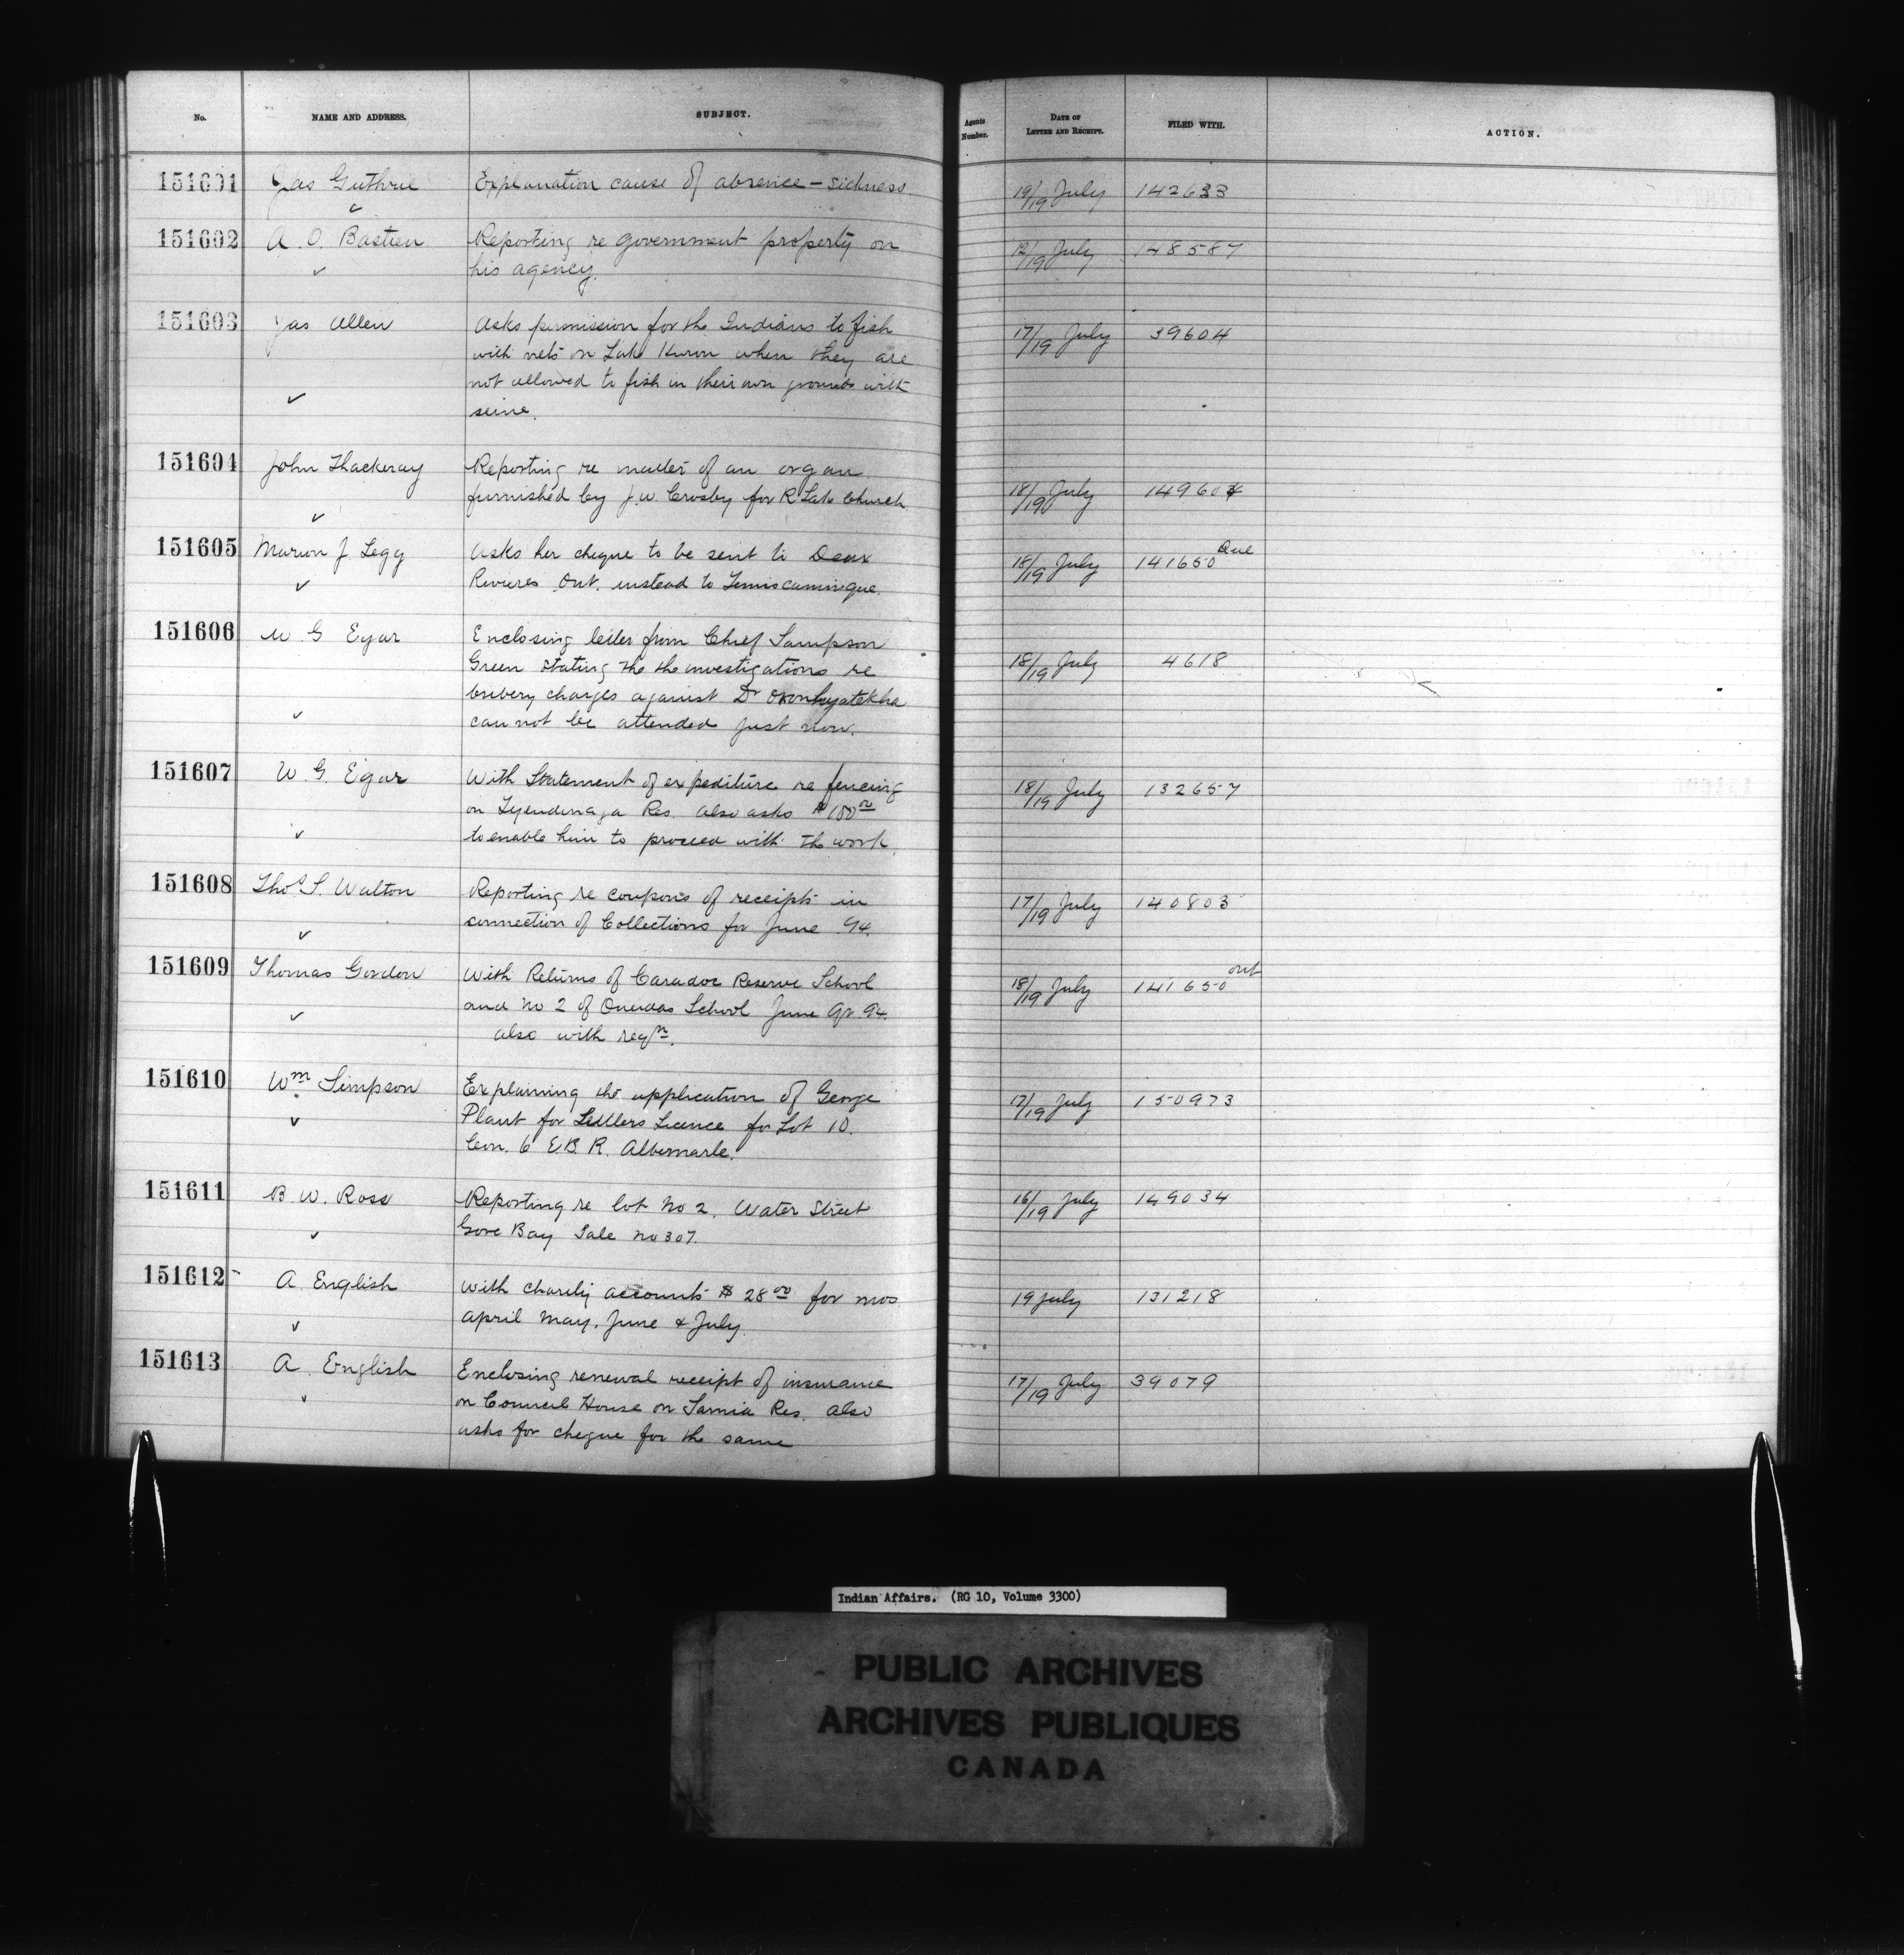 No. NAME AND ADDRESS. SUBJECT. Agents Number. DATE OF LETTER AND RECEIPT. FILED WITH. ACTION.
151601 Jas Guthrie Explanation cause of absence - sickness. 19/19 July 142633
151602 A. O. Bastien Reporting re government property on 12/19 July 148587
his agency.
151603 Jas Allen Asks permission for the Indians to fish 17/19 July 39604
with nets on Lake Huron when they are
not allowed to fish in their own grounds with
seine.
151604 John Thackeray Reporting re matter of an organ
furnished by J. W. Crosby for R Lake Church 18/19 July 149604
151605 Marion J. Legg Asks her cheque to be sent to Deux 18/19 July 141650 Que
Rivieres Ont. instead to Temiscamingue.
151606 W G Egar Enclosing letter from Chief Sampson
Green stating the the investigations re 18/19 July 4618
bribery charges against Dr Oronhyatekha
can not be attended just now.
151607 W. G. Egar With Statement of expediture re fencing 18/19 July 132657
on Tyendinaga Res. also asks $100.00
to enable him to proceed with the work.
151608 Thos S. Walton Reporting re coupons of receipts in 17/19 July 140803
connection of Collections for June 94.
151609 Thomas Gordon With Returns of Caradoc Reserve School 18/19 July 141650 Ont
and No 2 of Oneidas School June Qr 94.
also with reqn.
151610 Wm Simpson Explaining the application of George 17/19 July 150973
Plant for Settlers Licence for Lot 10.
Con. 6 E.B.R. Albemarle.
151611 B. W. Ross Reporting re lot No 2. Water Street 16/19 July 149034
Gore Bay Sale No 307.
151612 A. English With charity accounts $28.00 for mos 19 July 131218
April May, June & July.
151613 A. English Enclosing renewal receipt of insurance 17/19 July 39079
on Council House on Sarnia Res. also
asks for cheque for the same
Indian Affairs. (RG 10, Volume 3300)
PUBLIC ARCHIVES
ARCHIVES PUBLIQUES
CANADA